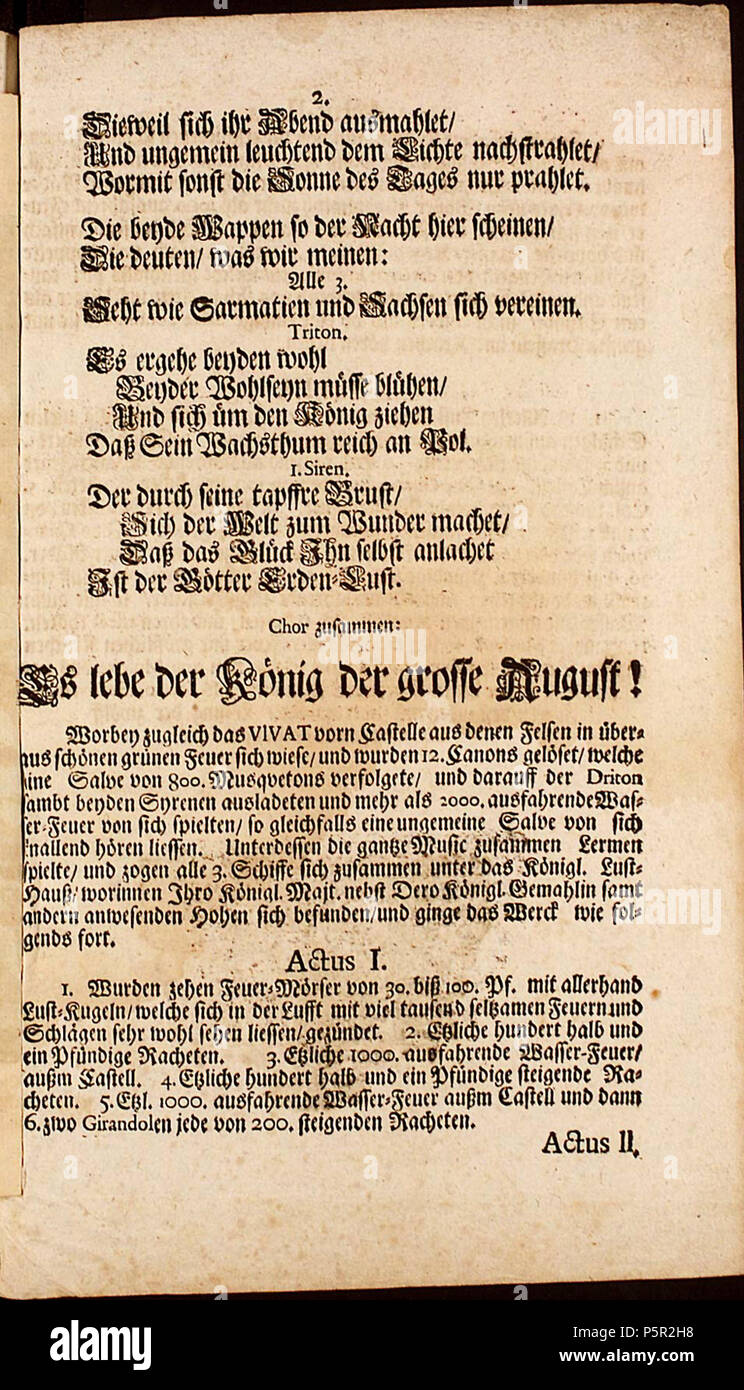 2.
Dieweil sich ihr Abend ausmahlet/
Und ungemein leuchtend dem Lichte nachstrahlet/
Wormit sonst die Sonne des Tages nur prahlet.
Die beyde Wappen so der Nacht hier scheinen/
Die deuten/ was wir meinen:
Alle 3.
Seht wie Sarmatien und Sachsen sich vereinen.
Triton.
Es ergehe beyden wohl
Beyder Wohlseyn müsse blühen/
Und sich üm den König ziehen
Daß Sein Wachsthum reich an Pol.
1. Siren.
Der durch seine tapffre Brust/
Sich der Welt zum Wunder machet/
Daß das Glück Ihn selbst anlachet
Ist der Götter Erden-Lust.
Chor zusammen:
Es lebe der König der grosse August!
Worbey zugleich das VIVAT vorn Castelle aus denen Felsen in über-
aus schönen grünen Feuer sich wiese/ und wurden 12. Canons gelöset/ welche
eine Salve von 800. Musqvetons verfolgete/ und darauff der Driton
sambt beyden Syrenen ausladeten und mehr als 2000. ausfahrende Was-
ser-Feuer von sich spielten/ so gleichfalls eine ungemeine Salve von sich
knallend hören liessen. Unterdessen die gantze Music zusammen Lermen
spielte/ und zogen alle 3. Schiffe sich zusammen unter das Königl. Lust-
Hauß/ worinnen Ihro Königl. Majt. nebst Dero Königl. Gemahlin samt
andern anwesenden Hohen sich befunden/ und ginge das Werck wie fol-
gends fort.
Actus I.
1. Wurden zehen Feuer-Mörser von 30. biß 100. Pf. mit allerhand
Lust-Kugeln/ welche sich in der Lufft mit viel tausend seltzamen Feuern und
Schlägen sehr wohl sehen liessen/ gezündet. 2. Etzliche hundert halb und
ein Pfündige Racheten. 3. Etzliche 1000. ausfahrende Wasser-Feuer/
außm Castell. 4. Etzliche hundert halb und ein Pfündige steigende Ra-
cheten. 5. Etzl. 1000. ausfahrende Wasser-Feuer außm Castell und dann
6. zwo Girandolen jede von 200. steigenden Racheten.
Actus II.
alamy
alamy
Image ID: P5R2H8
www.alamy.com